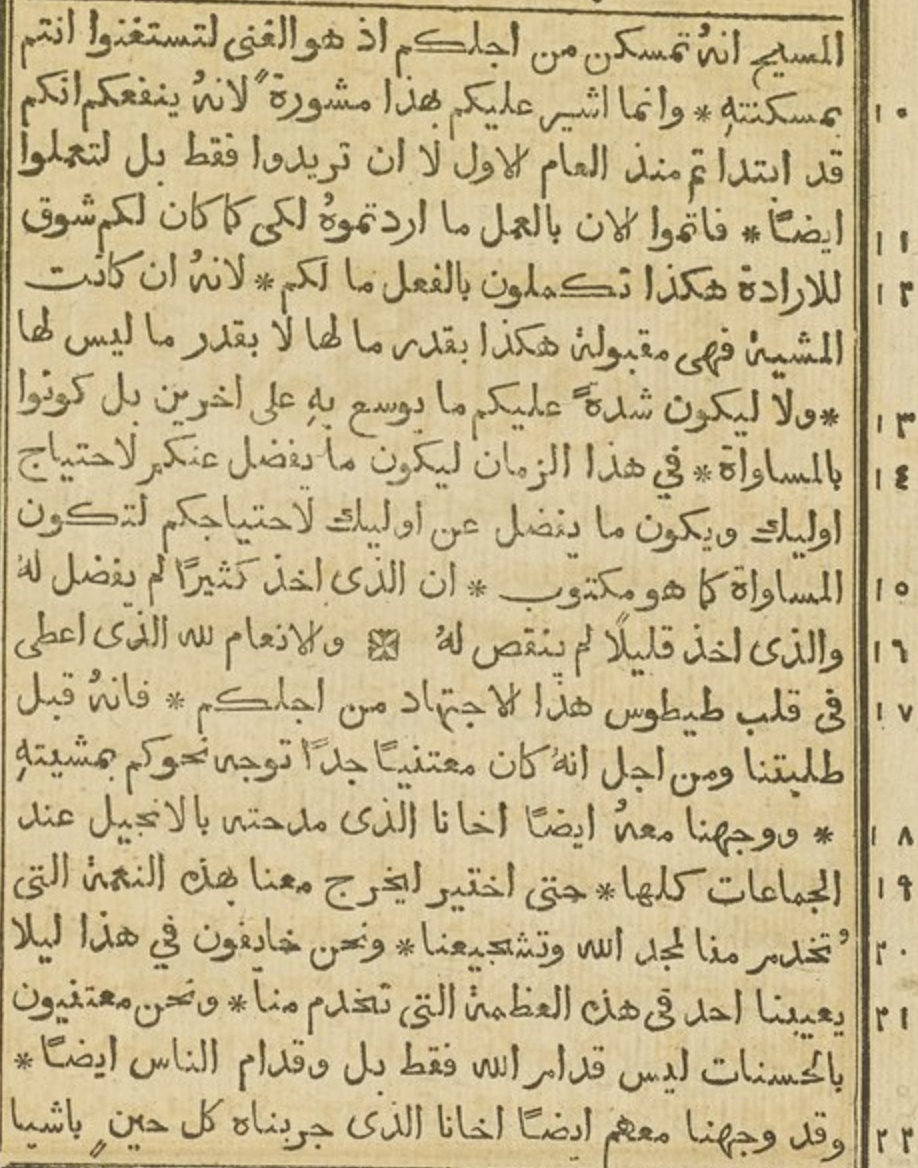 المسيح انهُ تمسكن من اجلكم اذ هو الغنى لتستغنوا انتم
بمسكنتهِ * وانما اشير عليكم بهذا مشورةً لانهُ ينفعكم انكم ١٠
قد ابتداتم منذ العام الاول لا ان تريدوا فقط بل لتعملوا
ايضًا * فاتموا الان بالعمل ما اردتموهُ لكى كما كان لكم شوق ١١
للارادة هكذا تكملون بالفعل ما لكم * لانهُ ان كانت ١٢
المشية فهى مقبولة هكذا بقدر ما لها لا بقدر ما ليس لها
* ولا ليكون شدةً عليكم ما يوسع بهِ على اخرين بل كونوا ١٣
بالمساواة * في هذا الزمان ليكون ما يفضل عنكم لاحتياج ١٤
اوليك ويكون ما يفضل عن اوليك لاحتياجكم لتكون
المساواة كما هو مكتوب * ان الذى اخذ كثيرًا لم يفضل لهُ ١٥
والذى اخذ قليلًا لم ينقص لهُ ※ والانعام لله الذى اعطى ١٦
فى قلب طيطوس هذا الاجتهاد من اجلكم * فانهُ قبل ١٧
طلبتنا ومن اجل انهُ كان معتنيًا جدًا توجه نحوكم بمشيتهِ
* ووجهنا معهُ ايضًا اخانا الذى مدحته بالانجيل عند ١٨
الجماعات كلها * حتى اختير ليخرج معنا بهذه النعمة التى ١٩
تُخدم منا لمجد الله وتشجيعنا * ونحن خايفون في هذا ليلا ٢٠
يعيبنا احد فى هذه العظمة التى تخدم منا * ونحن معتنيون ٢١
بالحسنات ليس قدام الله فقط بل وقدام الناس ايضًا *
وقد وجهنا معهم ايضًا اخانا الذى جربناه كل حينٍ باشيا ٢٢